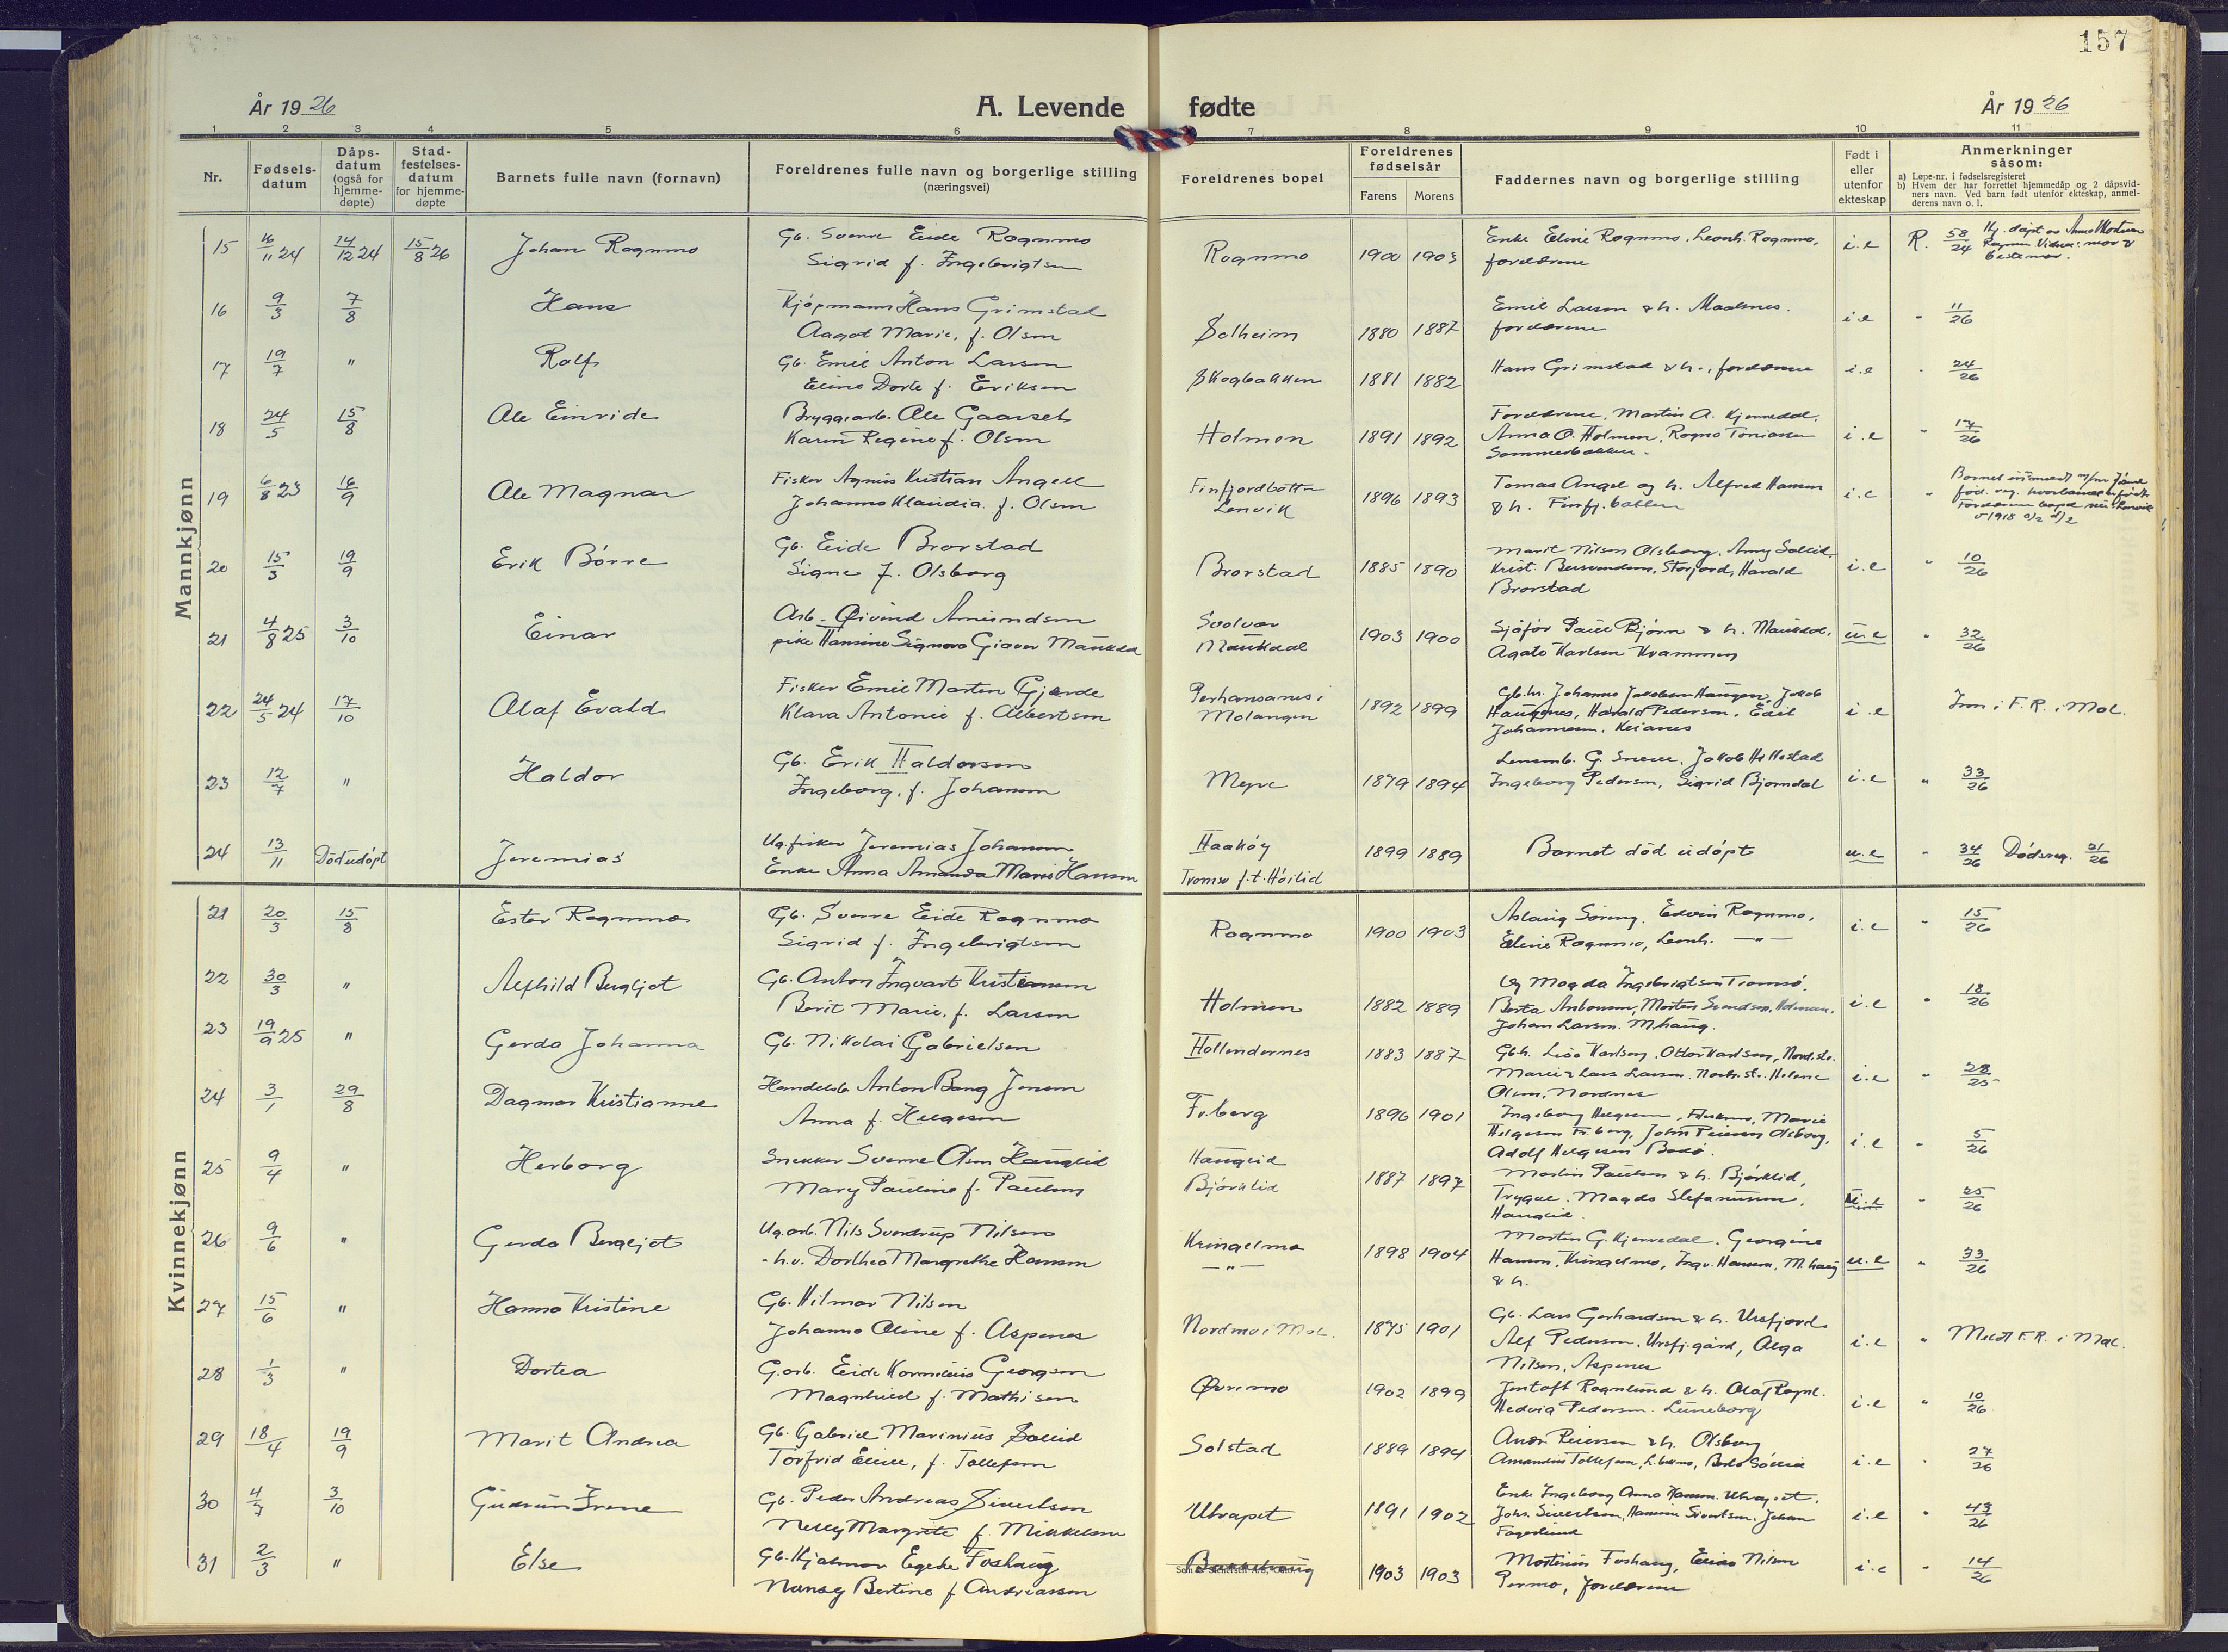 157
År 1926
A. Levende fødte
År 1926
1 2 3 4 5 6 7 8 9 10 11
Nr.
Fødsels-
datum
Dåps-
datum
(også for
hjemme-
døpte)
Stad-
festelses-
datum
for hjemme-
døpte
Barnets fulle navn (fornavn)
Foreldrenes fulle navn og borgerlige stilling
(næringsvei)
Foreldrenes bopel
Foreldrenes
fødselsår
Farens Morens
Faddernes navn og borgerlige stilling
Født i
eller
utenfor
ekteskap
Anmerkninger
såsom:
a) Løpe-nr. i fødselsregisteret
b) Hvem der har forrettet hjemmedåp og 2 dåpsvid-
ners navn. Ved barn født utenfor ekteskap, anmel-
derens navn o. l.
Mannkjønn
15 16/11 24 14/12 24 15/8 26 Johan Rognmo
Gb. Sverre Eide Rognmo
Sigrid f. Ingebrigtsen
Rognmo 1900 1903
Enke Eline Rognmo, Leonh. Rognmo,
foreldrene
i.e R. 58/24
16 9/3 7/8 Hans
Kjøpmann Hans Grimstad
Aagot Marie, f. Olsen
Solheim 1880 1887
Emil Larsen & h. Maalsnes.
foreldrene
i.e " 11/26
17 19/7 " Rolf
Gb. Emil Anton Larsen
Eline Dorte f. Eriksen
Skogbakken 1881 1882
Hans Grimstad & h., foreldrene
i.e " 24/26
18 24/5 15/8 Ole Einride
Bryggearb. Ole Gaarseth
Karen Regine f. Olsen
Holmen 1891 1892
Foreldrene, Martin A. Kjerredal,
Anna O. Holmen, Ragna Toniassen
Sommerbakken.
i.e " 17/26
19 6/8 23 16/9 Ole Magnar
Fisker Agnius Kristian Angell
Johanna Klaudia f. Olsen
Finfjordbotten
Lenvik
1896 1893
Tomas Angel og h. Alfred Hansen
& h. Finfj.bakken
i.e "
20 15/3 19/9 Erik Børre
Gb. Eide Brorstad
Signe f. Olsborg
Brorstad 1885 1890
Marit Nilsen Olsborg, Amy Sollid,
Krist. Bersvendsen, Storjord, Harald
Brorstad
i.e " 10/26
21 4/8 25 3/10 Einar
Arb. Øivind Amundsen
pike Hansine Signora Giæver Maukdal
Svolvær
Maukdal
1903 1900
Sjåfør Paul Bjørn & h. Maukdal,
Agate Karlsen Kvammen
u.e " 32/26
22 24/5 24 17/10 Olaf Evald
Fisker Emil Marten Gjerde
Klara Antonie f. Albertsen
Perhansanes i
Malangen
1892 1899
Gb.hr. Johanna Jakobsen Haugen, Jakob
Haugenes, Harald Pedersen, Edit
Johannesen.
i.e Inn i F.R. i Mal.
23 12/7 " Haldor
Gb. Erik Haldorsen
Ingeborg, f. Johansen
Myre 1879 1894
Lensmb. G. Sneve, Jakob Hellestad
Ingeborg Pedersen, Sigrid Bjorndal
i.e " 33/26
24 13/11 Død udøpt Jeremias
Ug. fisker Jeremias Johansen
Enke Anna Amanda Marie Hansen
Haakøy
Tromsø f.t. Høilid
1899 1889
Barnet død udøpt
u.e " 34/26 Dødsreg. 21/26
Kvinnekjønn
21 20/3 15/8 Ester Rognmo
Gb. Sverre Eide Rognmo
Sigrid f. Ingebrigtsen
Rognmo 1900 1903
Aslaug Søreng, Edvin Rognmo,
Eline Rognmo, Leonh. —"—
i.e " 15/26
22 30/3 " Alfhild Bergljot
Gb. Anton Ingvart Kristensen
Berit Marie, f. Larsen
Holmen 1882 1889
Ug Magda Ingebrigtsen Tromsø,
Berta Antonsen, Morten Svendsen, Holmen,
Johan Larsen. M.haug.
i.e " 18/26
23 19/9 25 " Gerda Johanna
Gb. Nikolai Gabrielsen
Hollendernes 1883 1887
Gbh. Lisa Karlsen, Ottar Karlsen, Nord.str.
Marie & Lars Larsen, Norh.str. Helene
Olsen, Nordnes
i.e " 28/25
24 3/1 29/8 Dagmar Kristianne
Handelsb. Anton Bang Jensen
Anna f. Helgesen
Fr.berg 1896 1901
Ingeborg Helgesen, Marie
Helgesen Fr.berg, John Peiersen Olsborg,
Adolf Helgesen Bodø.
i.e " 5/26
25 9/4 " Herborg
Snekker Sverre Olsen Hauglid
Mary Pauline f. Paulsen
Hauglid
Bjørklid
1887 1897
Martin Paulsen & h. Bjørklid,
Trygve, Magda Stefanussen,
Hauglid.
u.e " 25/26
26 9/6 " Gerda Bergljot
Ug.arb. Nils Svendrup Nilsen
" h.v. Dorthea Margrethe Hansen
Kringelmo
—"—
1898 1904
Martin G. Kjerredal, Georgine
Hansen, Kringelmo, Ingv. Hansen, M.haug
& h.
u.e " 33/26
27 15/6 " Hanna Kristine
Gb. Hilmar Nilsen
Johanna Oline f. Aspenes
Nordmo i Mal. 1875 1901
Gb. Lars Gerhardsen & h. Ursfjord
Alf Pedersen, Ursfj.gård, Olga
Nilsen, Aspenes
i.e " Meldt F.R. i Mal.
28 1/3 " Dortea
G.arb. Eide Kornelius Georgsen
Magnhild f. Mathisen
Øvremo 1902 1899
Jentoft Rognlund & h. Olaf Rognl.
Hedvig Pedersen. Luneborg
i.e " 10/26
29 18/4 19/9 Marit Andrea
Gb. Gabriel Marinius Sollid
Torfrid Elise, f. Tollefsen
Solstad 1889 1894
Andr. Peiersen & h. Olsborg
Amandus Tollefsen, Berta Sollid
i.e " 27/26
30 4/7 3/10 Gudrun Irene
Gb. Peder Andreas Sivertsen
Nelly Margrete f. Mikkelsen
Utvapet 1891 1902
Enke Ingeborg Anna Hansen.
Johs. Sivertsen, Hansine Sivertsen, Johan
Fagerlund
i.e " 43/26
31 2/3 " Else
Gb. Hjalmar Egede Foshaug
Nansy Bertine f Andreassen
Bakkehaug 1903 1903
Martinius Foshaug, Elias Nilsen
Permo, foreldrene
i.e " 14/26